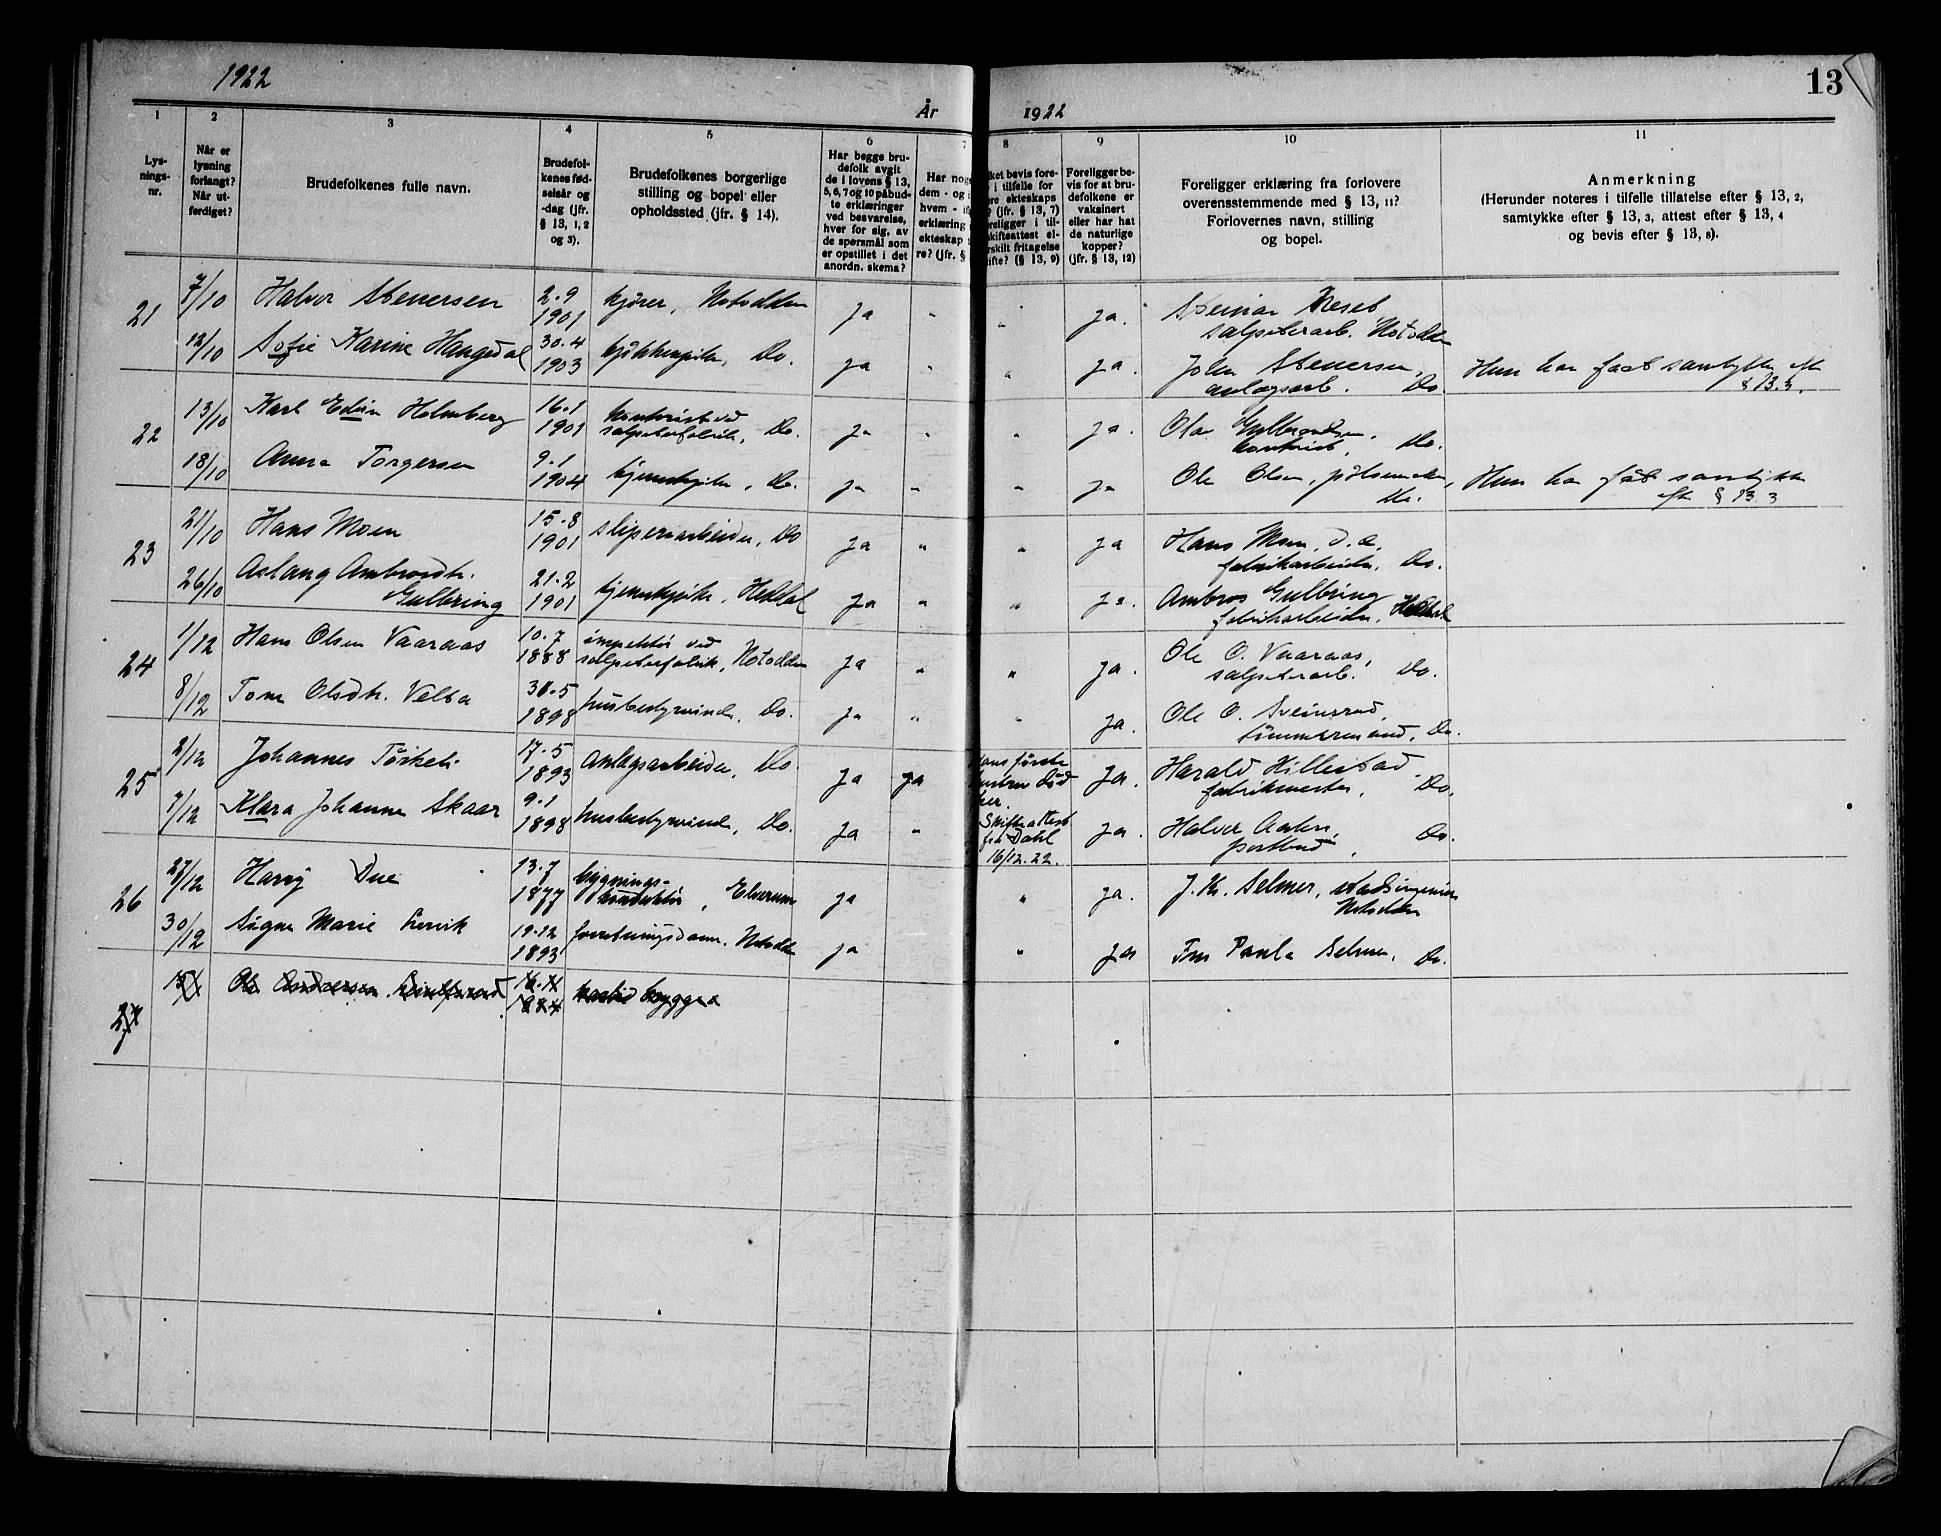 1922
År 1922
13
1
2
3
4
5
6
7
8
9
10
11
Lys-
nings-
nr.
Når er
lysning
forlangt?
Når ut-
ferdiget?
Brudefolkenes fulle navn.
Brudefol-
kenes fød-
selsår og
-dag (jfr.
§ 13, 1, 2
og 3).
Brudefolkenes borgerlige
stilling og bopel eller
opholdssted (jfr. § 14).
Har begge bru-
defolk avgit
de i lovens § 13,
5, 6, 7 og 10 påbud-
te erklæringer
ved besvarelse,
hver for sig, av
de spørsmål som
er opstillet i det
anordn. skema?
Har nog
dem - og i
hvem - if
erklæring
ekteskap
re? (jfr. §
ket bevis fore-
i tilfelle for
re ekteskaps
? (jfr. § 13, 7)
religger i til-
skifteattest el-
rskilt fritagelse
ifte? (§ 13, 9)
Foreligger be-
vis for at bru-
defolkene er
vaksinert
eller har hat
de naturlige
kopper?
(jfr. § 13, 12)
Foreligger erklæring fra forlovere
overensstemmende med § 13, 11?
Forlovernes navn, stilling
og bopel.
Anmerkning
(Herunder noteres i tilfelle tillatelse efter § 13, 2,
samtykke efter § 13, 3, attest efter § 13, 4
og bevis efter § 13, 8).
21
7/10 Halvor Stenersen 2.9 1901 kjører, Notodden ja " " ja. Steinar
salpeterarb. Notodden
12/10 Sofie Karine Haugedal 30.4 1903 kjøkkenpike, Do. ja " " ja. John Stenersen,
anlægsarb. Do. Hun har faat samtykke eft.
§ 13.3.
22
13/10 Karl Edvin Holmberg 16.1 1901 kontorist ved
salpeterfabrik, Do. ja " " ja. Ola Gulbrandsen,
kontorist, Do.
18/10 Anna Torgersen 9.1 1904 tjenestepike, Do. ja " " ja Ole Olsen, pølsemaker,
Do. Hun har fåt samtykke
eft. § 13.3
23
21/10 Hans Moen 15.8 1901 sliperiarbeider, Do ja " " ja Hans Moen, d.e.
fabrikarbeider, Do.
26/10 Aslaug Ambrosdtr.
Gulbring 21.2 1901 tjenestepike, Heddal ja " " ja. Ambros Gulbring
fabrikarbeider, Heddal
24
1/12 Hans Olsen Vaaraas 10.7 1888 inspektør ved
salpeterfabrik, Notodden ja " " ja. Ole O. Vaaraas,
salpeterarb. Do.
8/12 Tone Olsdtr. Velta 30.5 1898 husbestyrerinde, Do. ja " " ja. Ole O. Sveinsrud,
tømmermand, Do.
25
2/12 Johannes 17.5 1893 Anlægsarbeider, Do ja ja ans første
hustru død
her. ja. Harald Hillestad
fabrikmester, Do.
7/12 Klara Johanne Skaar 9.1 1898 husbestyrerinde, Do. ja " Skifteattest
fra Dahl
16/12.22. ja. Halvor
postbud, Do.
26
27/12 Harry Due 13.7 1877 bygnings-
konduktør, Elverum ja " ja. J. Kr. Selmer, stadsingeniør
Notodden
30/12 Signe Marie Lervik 19.12 1893 forretningsdame, Notodden ja " ja Fru Paula Selmer, Do.
27
Ole Anderssen